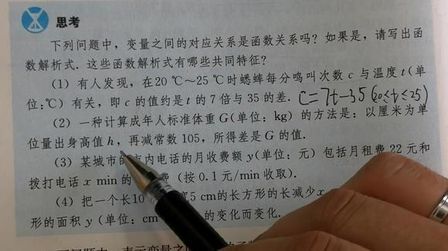 思考
下列问题中，变量之间的对应关系是函数关系吗？如果是，请写出函
数解析式．这些函数解析式有哪些共同特征？
(1) 有人发现，在20 ℃～25 ℃时蟋蟀每分鸣叫次数 c 与温度 t(单
位：℃) 有关，即 c 的值约是 t 的 7 倍与 35 的差． C=7t-35 (20≤t≤25)
(2) 一种计算成年人标准体重 G(单位：kg) 的方法是：以厘米为单
位量出身高值 h，再减常数 105，所得差是 G 的值．
(3) 某城市的 内电话的月收费额 y(单位：元) 包括月租费 22 元和
拨打电话 x min 的 费 (按 0.1 元/min 收取)．
(4) 把一个长10 宽5 cm的长方形的长减少 x
形的面积 y (单位：cm 的变化而变化．